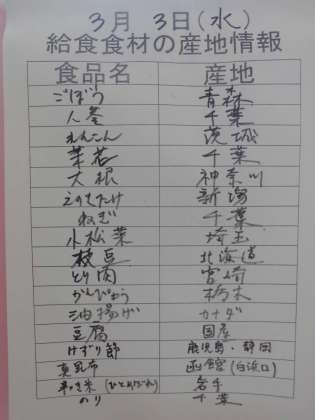 3月 3日(水)
給食食材の産地情報
食品名 産地
ごぼう 青森
人参 千葉
れんこん 茨城
菜花 千葉
大根 神奈川
えのきたけ 新潟
ねぎ 千葉
小松菜 埼玉
枝豆 北海道
とり肉 宮崎
かんぴょう 栃木
油揚げ カナダ
豆腐 国産
けずり節 鹿児島・静岡
真昆布 函館(白浜口)
精米(ひとめぼれ) 岩手
のり 千葉